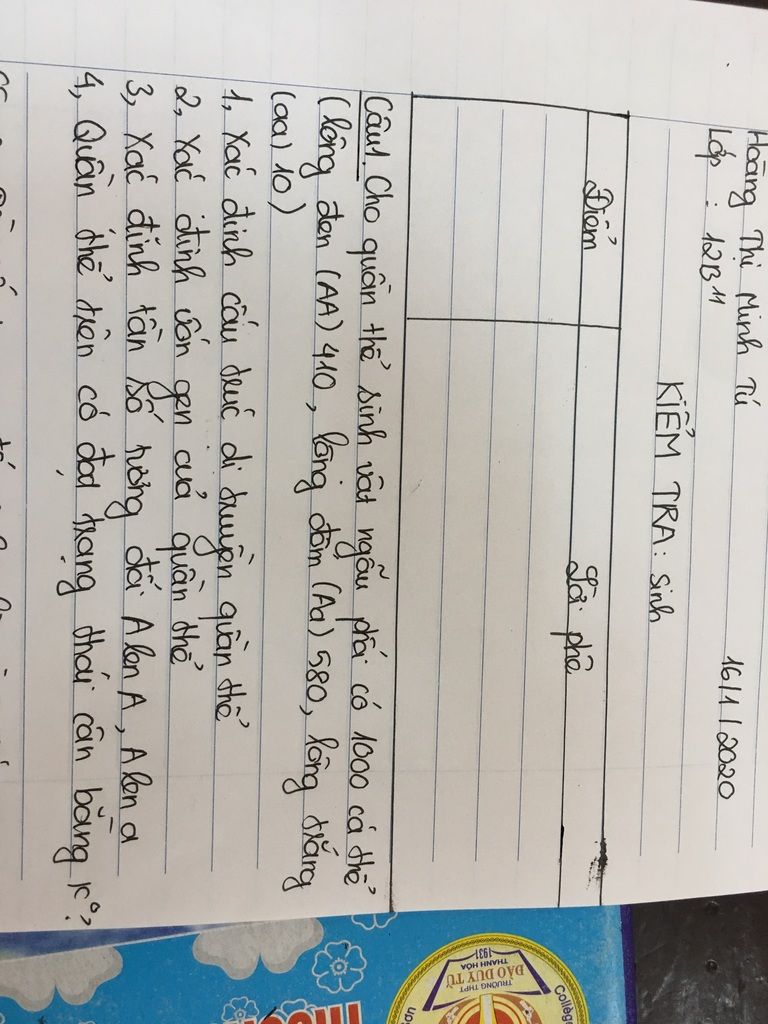 Hoàng Thị Minh Tú 16/1/2020
Lớp: 12B11
KIỂM TRA: Sinh
Điểm Lời phê
Câu1, Cho quần thể sinh vật ngẫu phối có 1000 cá thể
(lông đen (AA) 410, lông đốm (Aa) 580, lông trắng
(aa) 10)
1, Xác định cấu trúc di truyền quần thể
2, Xác định vốn gen của quần thể
3, Xác định tần số tương đối Alen A, Alen a
4, Quần thể trên có đạt trạng thái cân bằng k°?
TRƯỜNG THPT
ĐÀO DUY TỪ
THANH HÓA
1931